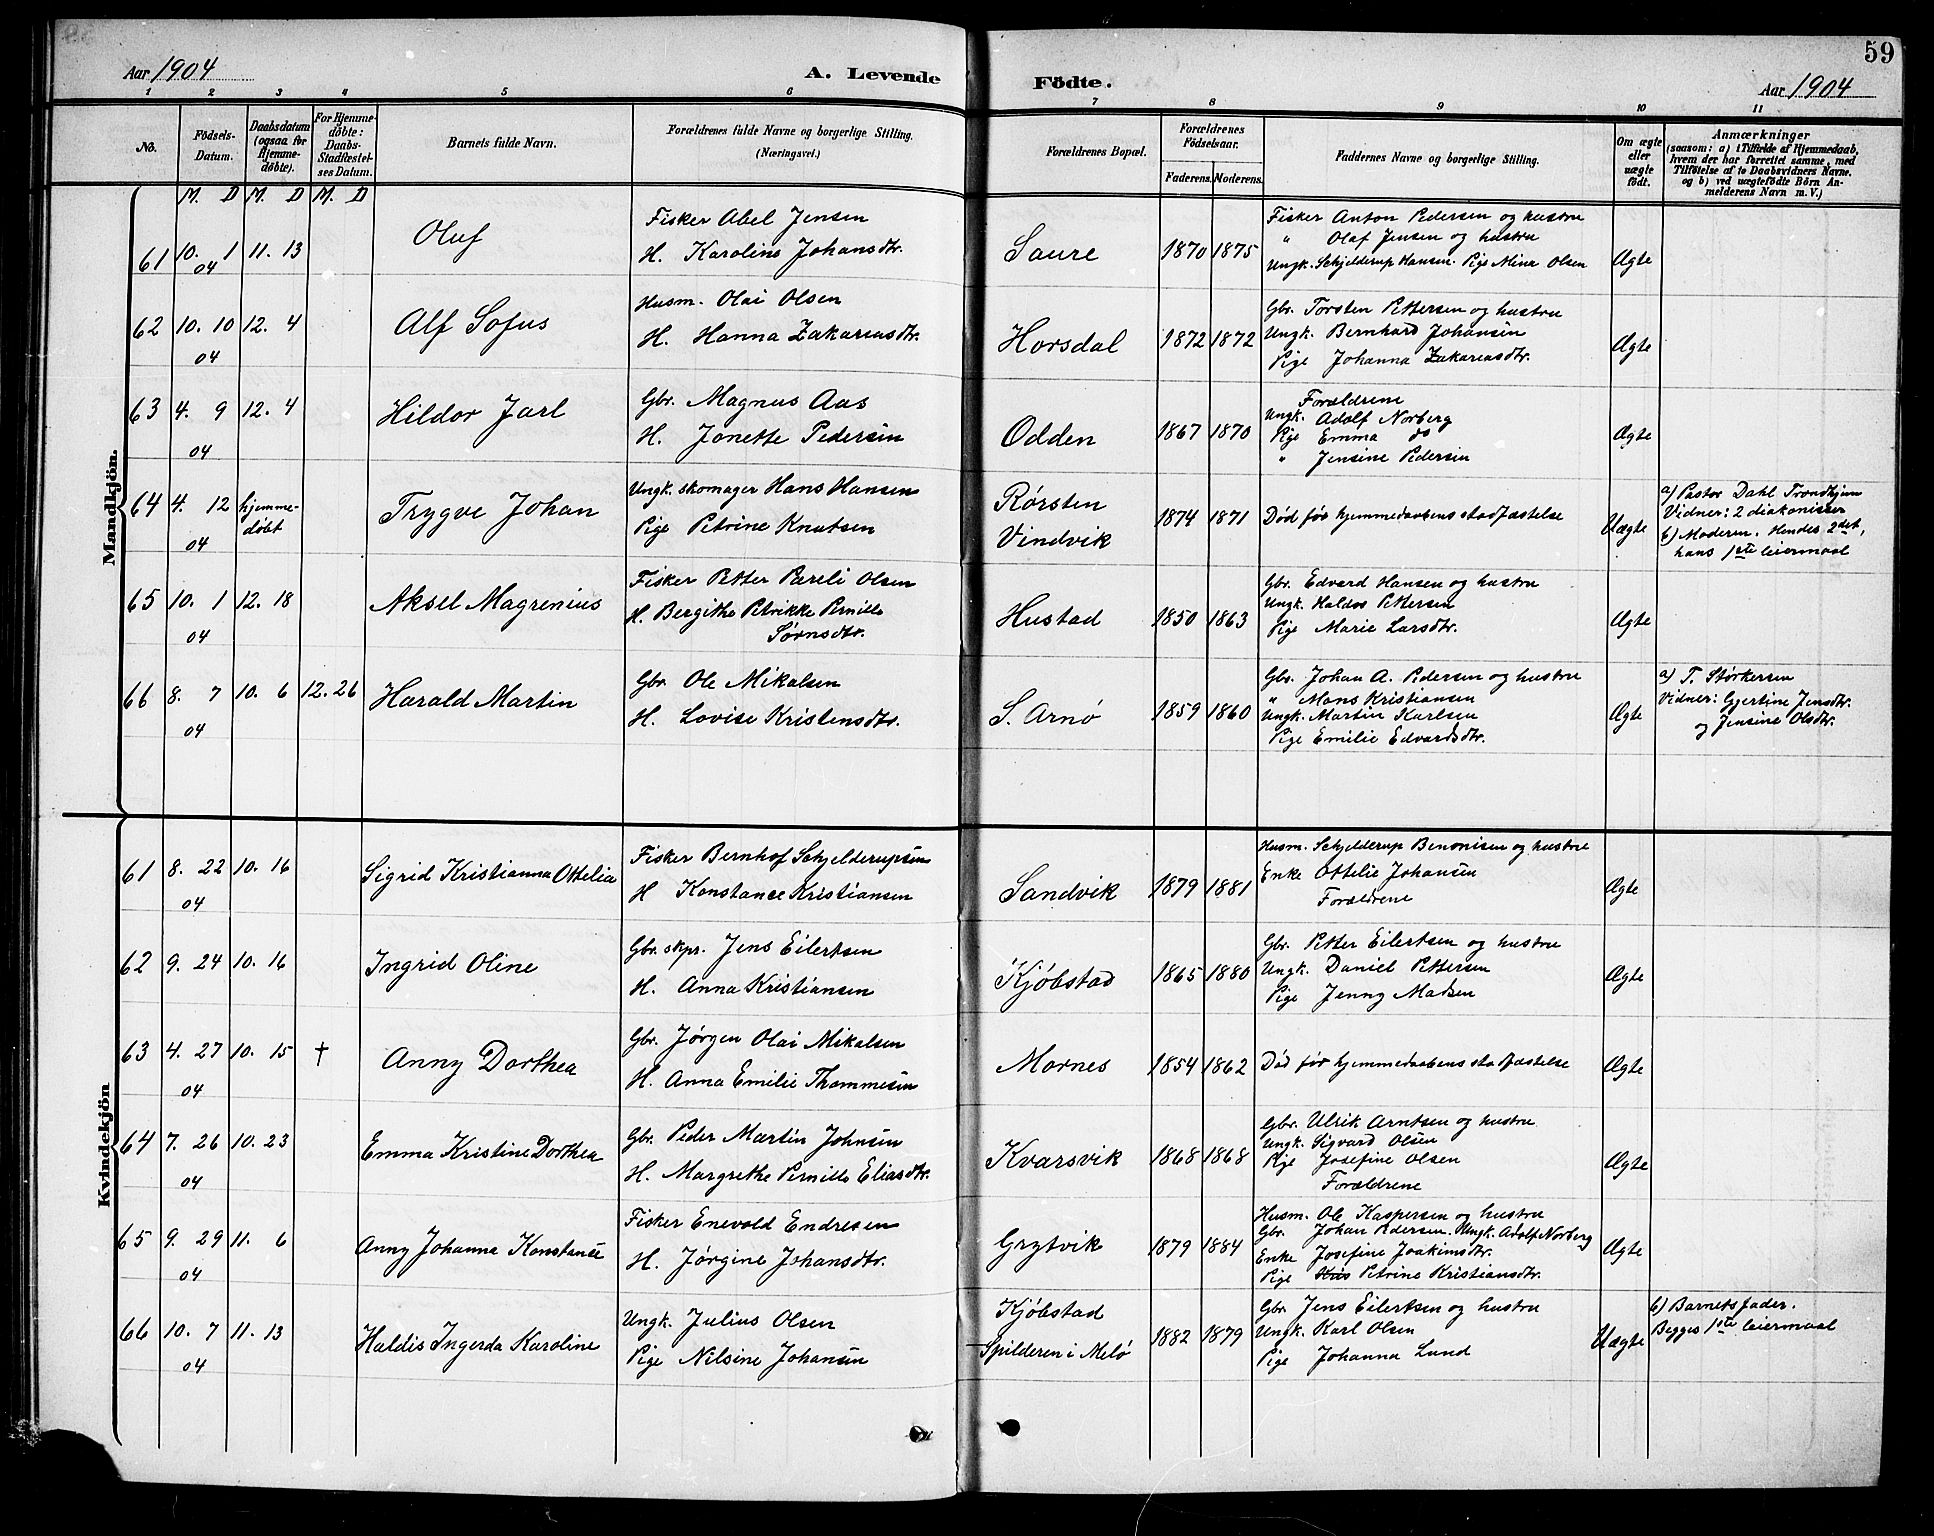 59
Aar 1904 A. Levende Fødte. Aar 1904
1 2 3 4 5 6 7 8 9 10 11
No. Födsels-Datum. Daabsdatum (ogsaa for Hjemmedöbte). For Hjemmedöbte: Daabs-Stadfæstelses Datum. Barnets fulde Navn. Forældrenes fulde Navne og borgerlige Stilling. (Næringsvei.) Forældrenes Bopæl. Forældrenes Födselsaar. Faderens. Moderens. Faddernes Navne og borgerlige Stilling. Om ægte eller uægte födt. Anmærkninger (saasom: a) i Tilfælde af Hjemmedaab, hvem der har forrettet samme, med Tilföielse af to Daabsvidners Navne, og b) ved uægtefödte Börn Anmelderens Navn m. V.)
M. D M. D M. D
Mandkjön.
61 10. 1 04 11. 13 Oluf
Fisker Abel Jensen
H. Karoline Johansdtr.
Saure 1870 1875
Fisker Anton Pedersen og hustru
" Olaf Jensen og hustru
Ungk. Schjelderup Hansen. Pige Mina Olsen
Ægte
62 10. 10 04 12. 4 Alf Sofus
Husm. Olai Olsen
H. Hanna Zakariasdtr.
Horsdal 1872 1872
Gbr. Torsten Pettersen og hustru
Ungk. Bernhard Johansen
Pige Johanna Zakariasdtr.
Ægte
63 4. 9 04 12. 4 Hildor Jarl
Gbr. Magnus Aas
H. Jonette Pedersen
Odden 1867 1870
Forældrene
Ungk. Adolf Norberg
Pige Emma do
" Jensine Pedersen
Ægte
64 4. 12 04 hjemmedøbt Trygve Johan
Ungk. skomager Hans Hansen
Pige Petrine Knutsen
Rørsten
Vindvik
1874 1871
Død før hjemmedaabens stadfæstelse
Uægte
a) Pastor Dahl Trondhjem
Vidner: 2 diakonisser
b) Moderen. Hendes 2det,
hans 1ste leiermaal
65 10. 1 04 12. 18 Aksel Magrenius
Fisker Petter Pareli Olsen
H. Bergithe Petrikke Pernille
Sørnsdtr.
Hustad 1850 1863
Gbr. Edvard Hansen og hustru
Ungk. Haldos Pettersen
Pige Marie Larsdtr.
Ægte
66 8. 7 04 10. 6 12. 26 Harald Martin
Gbr. Ole Mikalsen
H. Lovise Kristensdtr.
S. Arnø 1859 1860
Gbr. Johan A. Pedersen og hustru
" Mons Kristiansen
Ungk. Martin Karlsen
Pige Emilie Edvardsdtr.
Ægte
a) T. Størkersen
Vidner: Gjertine Jensdtr.
og Jensine Olsdtr.
Kvindekjön
61 8. 22 04 10. 16 Sigrid Kristianna Ottelia
Fisker Bernhof Schjelderupsen
H Konstance Kristiansen
Sandvik 1879 1881
Husm. Schjelderup Benonisen og hustru
Enke Ottelie Johansen
Forældrene
Ægte
62 9. 24 04 10. 16 Ingrid Oline
Gbr. skpr. Jens Eilertsen
H. Anna Kristiansen
Kjøbstad 1865 1880
Gbr. Petter Eilertsen og hustru
Ungk. Daniel Pettersen
Pige Jenny Madsen
Ægte
63 4. 27 04 10. 15 † Anny Dorthea
Gbr. Jørgen Olai Mikalsen
H. Anna Emilie Thommesen
Mornes 1854 1862
Død før hjemmedaabens stadfæstelse
Ægte
64 7. 26 04 10. 23 Emma Kristine Dorthea
Gbr. Peder Martin Johnsen
H. Margrethe Pernille Eliasdtr.
Kvarsvik 1868 1868
Gbr. Ulrik Arntsen og hustru
Ungk. Sigvard Olsen
Pige Josefine Olsen
Forældrene
Ægte
65 9. 29 04 11. 6 Anny Johanna Konstance
Fisker Enevold Endresen
H. Jørgine Johansdtr.
Grytvik 1879 1884
Husm. Ole Kaspersen og hustru
Gbr. Johan Pedersen. Ungk. Adolf Norberg
Enke Josefine Joakimsdtr.
Pige Kris Petrine Kristiansdtr.
Ægte
66 10. 7 04 11. 13 Haldis Ingerda Karoline
Ungk. Julius Olsen
Pige Nilsine Johansen
Kjøbstad
Spilderen i Melø
1882 1879
Gbr. Jens Eilertsen og hustru
Ungk. Karl Olsen
Pige Johanna Lund
Uægte
b) Barnets fader.
Begges 1ste leiermaal